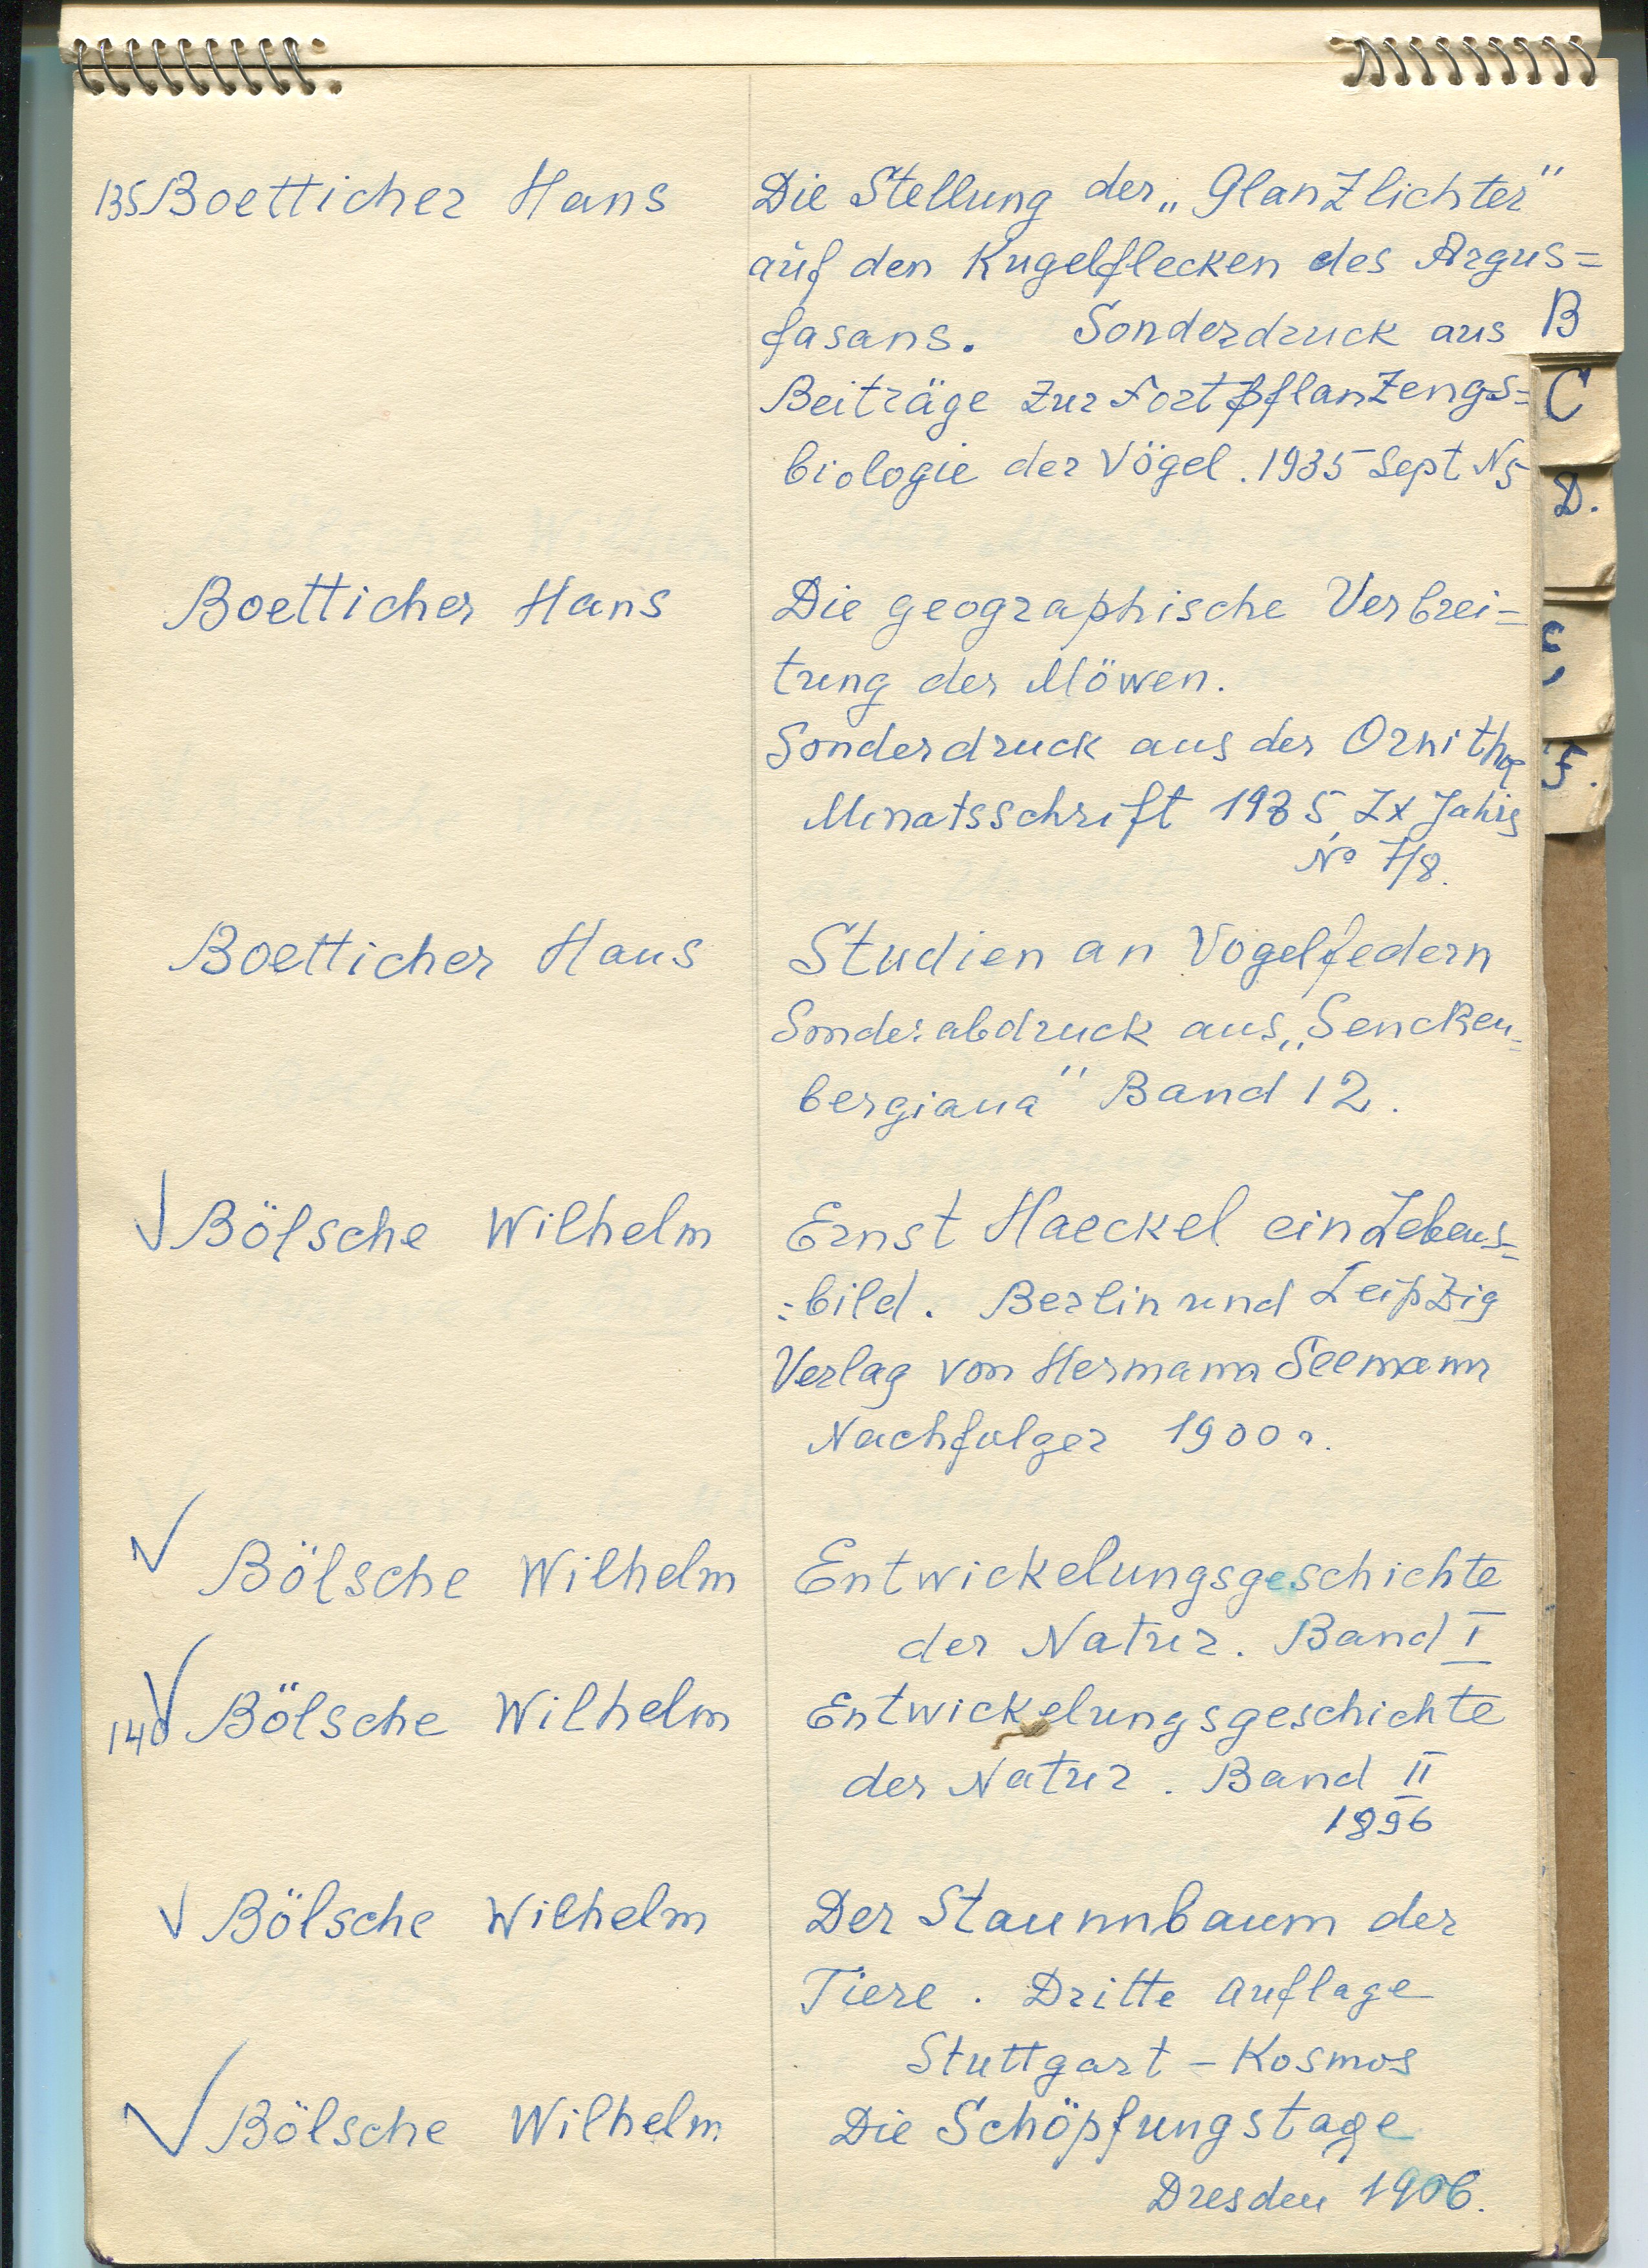 135 Boetticher Hans Die Stellung der „Glanzlichter"
auf den Kugelflecken des Argus=
fasans. Sonderdruck aus
Beiträge zur Fortpflanzengs=
biologie der Vögel. 1935 Sept N5
Boetticher Hans Die geographische Verbrei=
tung der Möwen.
Sonderdruck aus der Ornitho
Monatsschrift 1935, Jahrg
No 7/8.
Boetticher Hans Studien an Vogelfedern
Sonderabdruck aus „Sencken=
bergiana" Band 12.
√ Bölsche Wilhelm Ernst Haeckel ein Lebens=
=bild. Berlin und Leipzig
Verlag von Hermann Seemann
Nachfolger 1900 r.
√ Bölsche Wilhelm Entwickelungsgeschichte
der Natur. Band I
140 √ Bölsche Wilhelm Entwickelungsgeschichte
der Natur. Band II
1896
√ Bölsche Wilhelm Der Stammbaum der
Tiere. Dritte Auflage
Stuttgart – Kosmos
√ Bölsche Wilhelm Die Schöpfungstage
Dresden 1906.
B
C
D.
F.